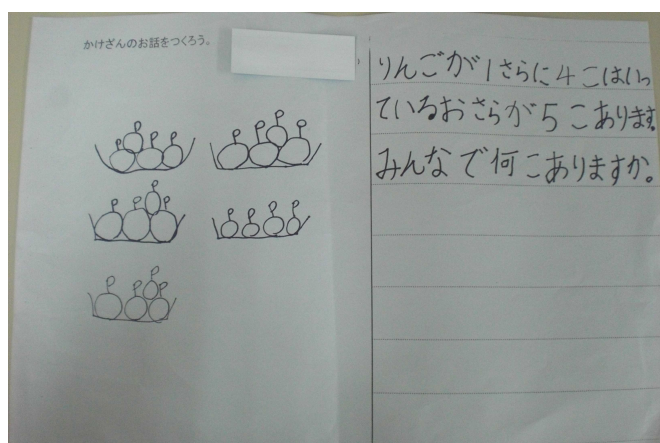 かけざんのお話をつくろう。
りんごが1さらに4こはいっ
ているおさらが5こあります。
みんなで何こありますか。